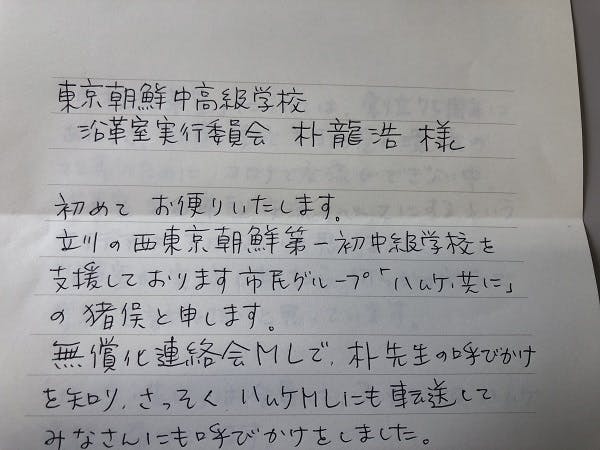 東京朝鮮中高級学校
沿革室実行委員会 朴龍浩 様
初めて お便りいたします。
立川の西東京朝鮮第一初中級学校を
支援しております市民グループ「ハムケ・共に」
の 猪俣と申します。
無償化連絡会MLで、朴先生の呼びかけ
を知り、さっそく、ハムケMLにも転送して
みなさんにも呼びかけをしました。